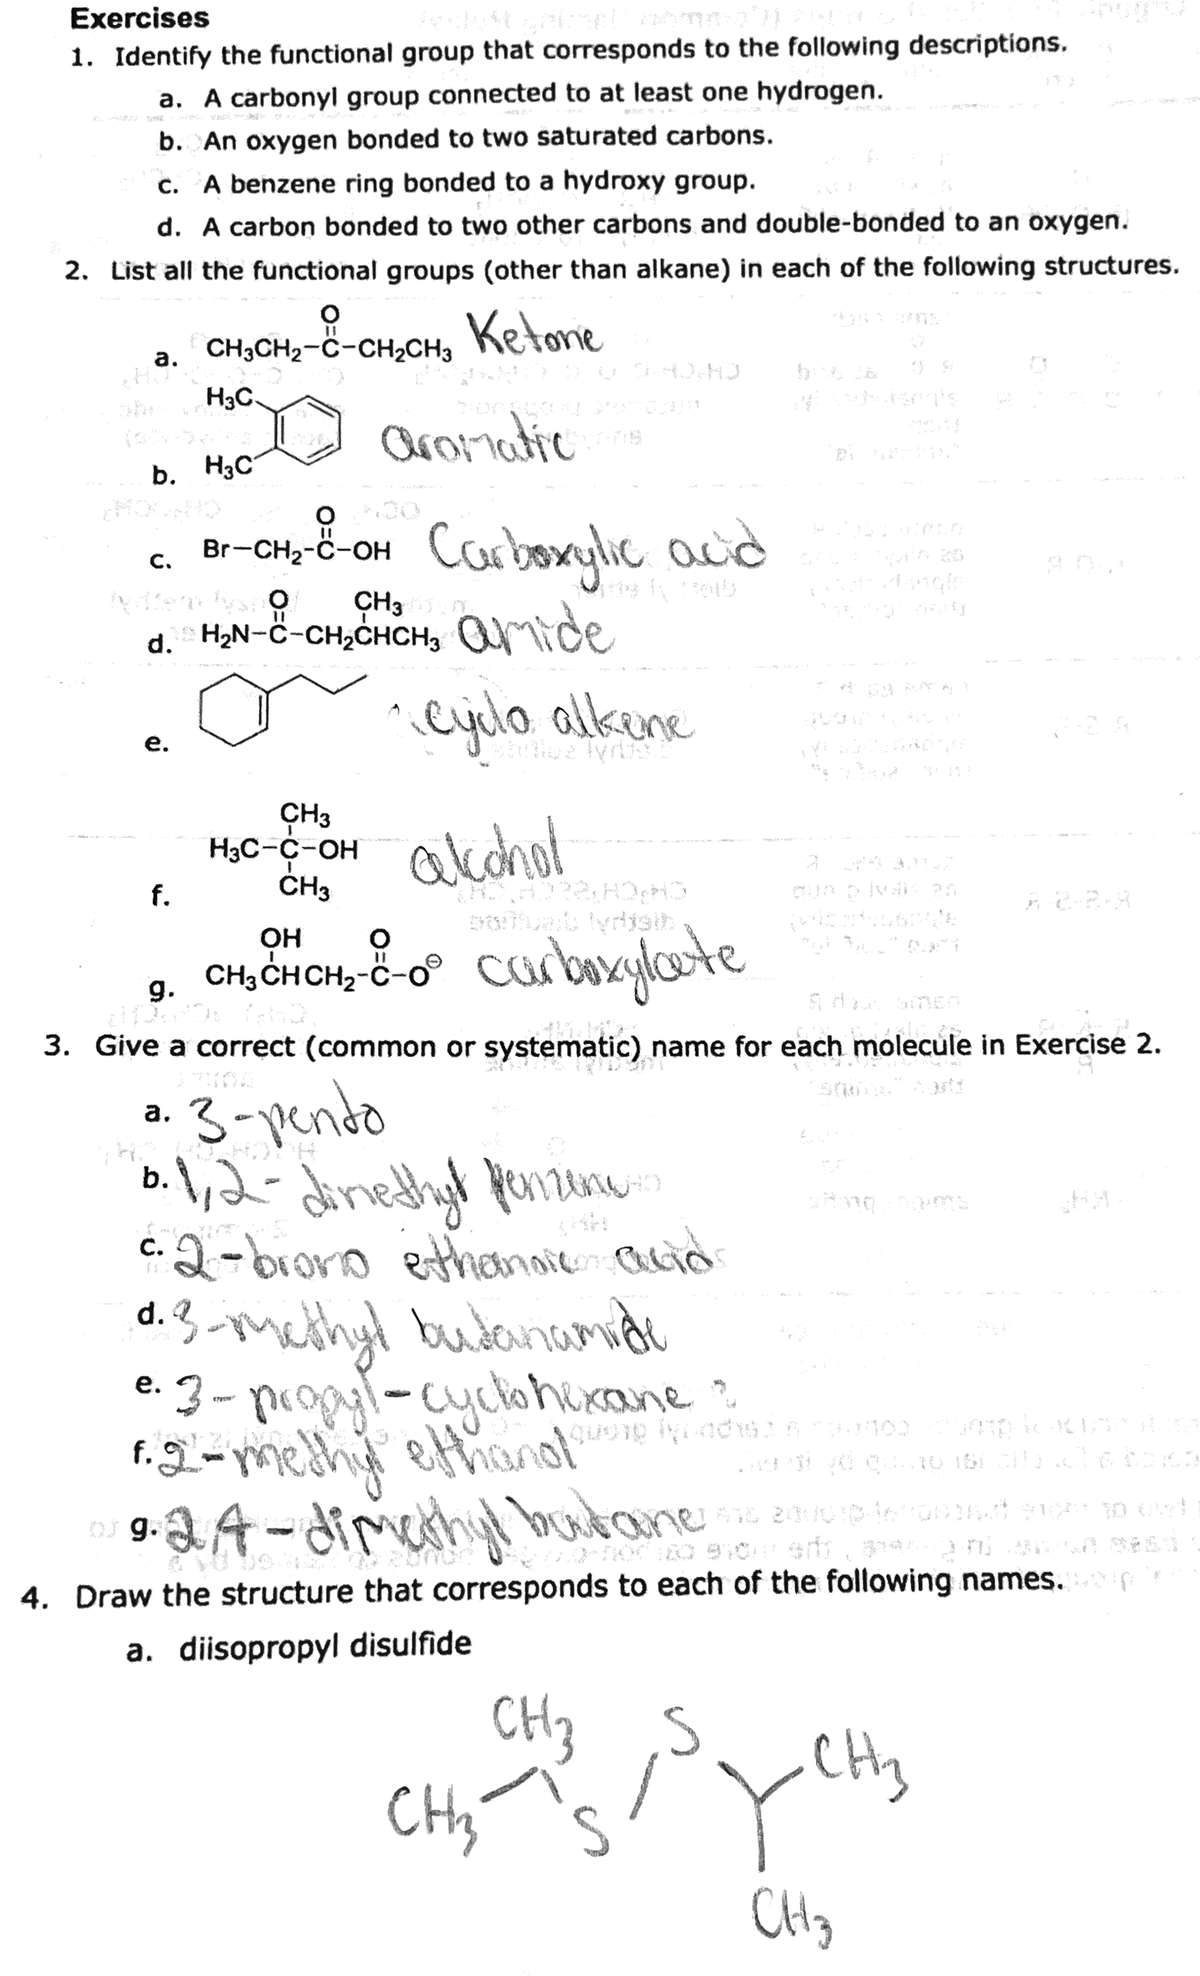 Exercises
1. Identify the functional group that corresponds to the following descriptions.
a. A carbonyl group connected to at least one hydrogen.
b. An oxygen bonded to two saturated carbons.
c. A benzene ring bonded to a hydroxy group.
d. A carbon bonded to two other carbons and double-bonded to an oxygen.
2. List all the functional groups (other than alkane) in each of the following structures.
O
a. CH₃CH₂-C-CH₂CH₃ Ketone
H₃C
aromatic
b. H₃C
O
c. Br-CH₂-C-OH Carboxylic acid
O CH₃
d. H₂N-C-CH₂CHCH₃ amide
cyclo alkene
e.
CH₃
H₃C-C-OH alcohol
CH₃
f.
OH O
g. CH₃CHCH₂-C-O⊖ carboxylate
3. Give a correct (common or systematic) name for each molecule in Exercise 2.
a. 3-pento
b. 1,2- dimethyl
c. 2-bromo ethanoic acid
d. 3-methyl butanamide
e. 3-propyl-cyclohexane ?
f. 2-methyl ethanol
g. 2,4-dimethyl butane
4. Draw the structure that corresponds to each of the following names.
a. diisopropyl disulfide
CH₃ S
CH₃
CH₃ S
CH₃